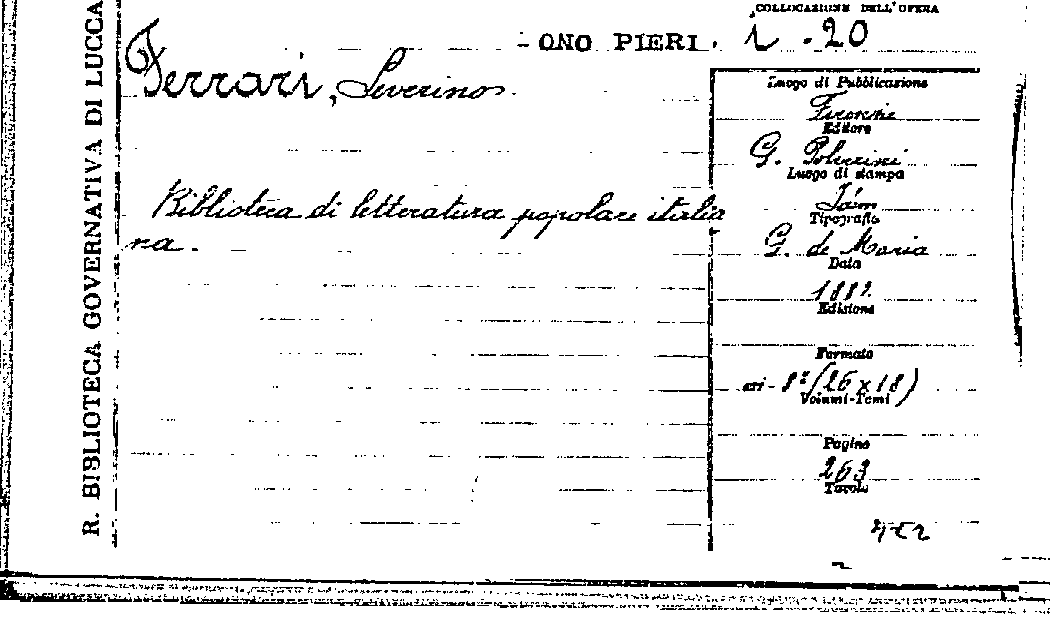 R. BIBLIOTECA GOVERNATIVA DI LUCCA
COLLOCAZIONE DELL'OPERA
- ONO PIERI. i. - 20
Ferrari, Severino.
Biblioteca di letteratura popolare italia
na.
Luogo di Pubblicazione
Firenze
Editore
G. Polverini
Luogo di stampa
Idem
Tipografia
G. de Maria
Data
1882
Edizione
Formato
8º (26 x 18)
Volumi-Tomi
Pagine
263
Tavole